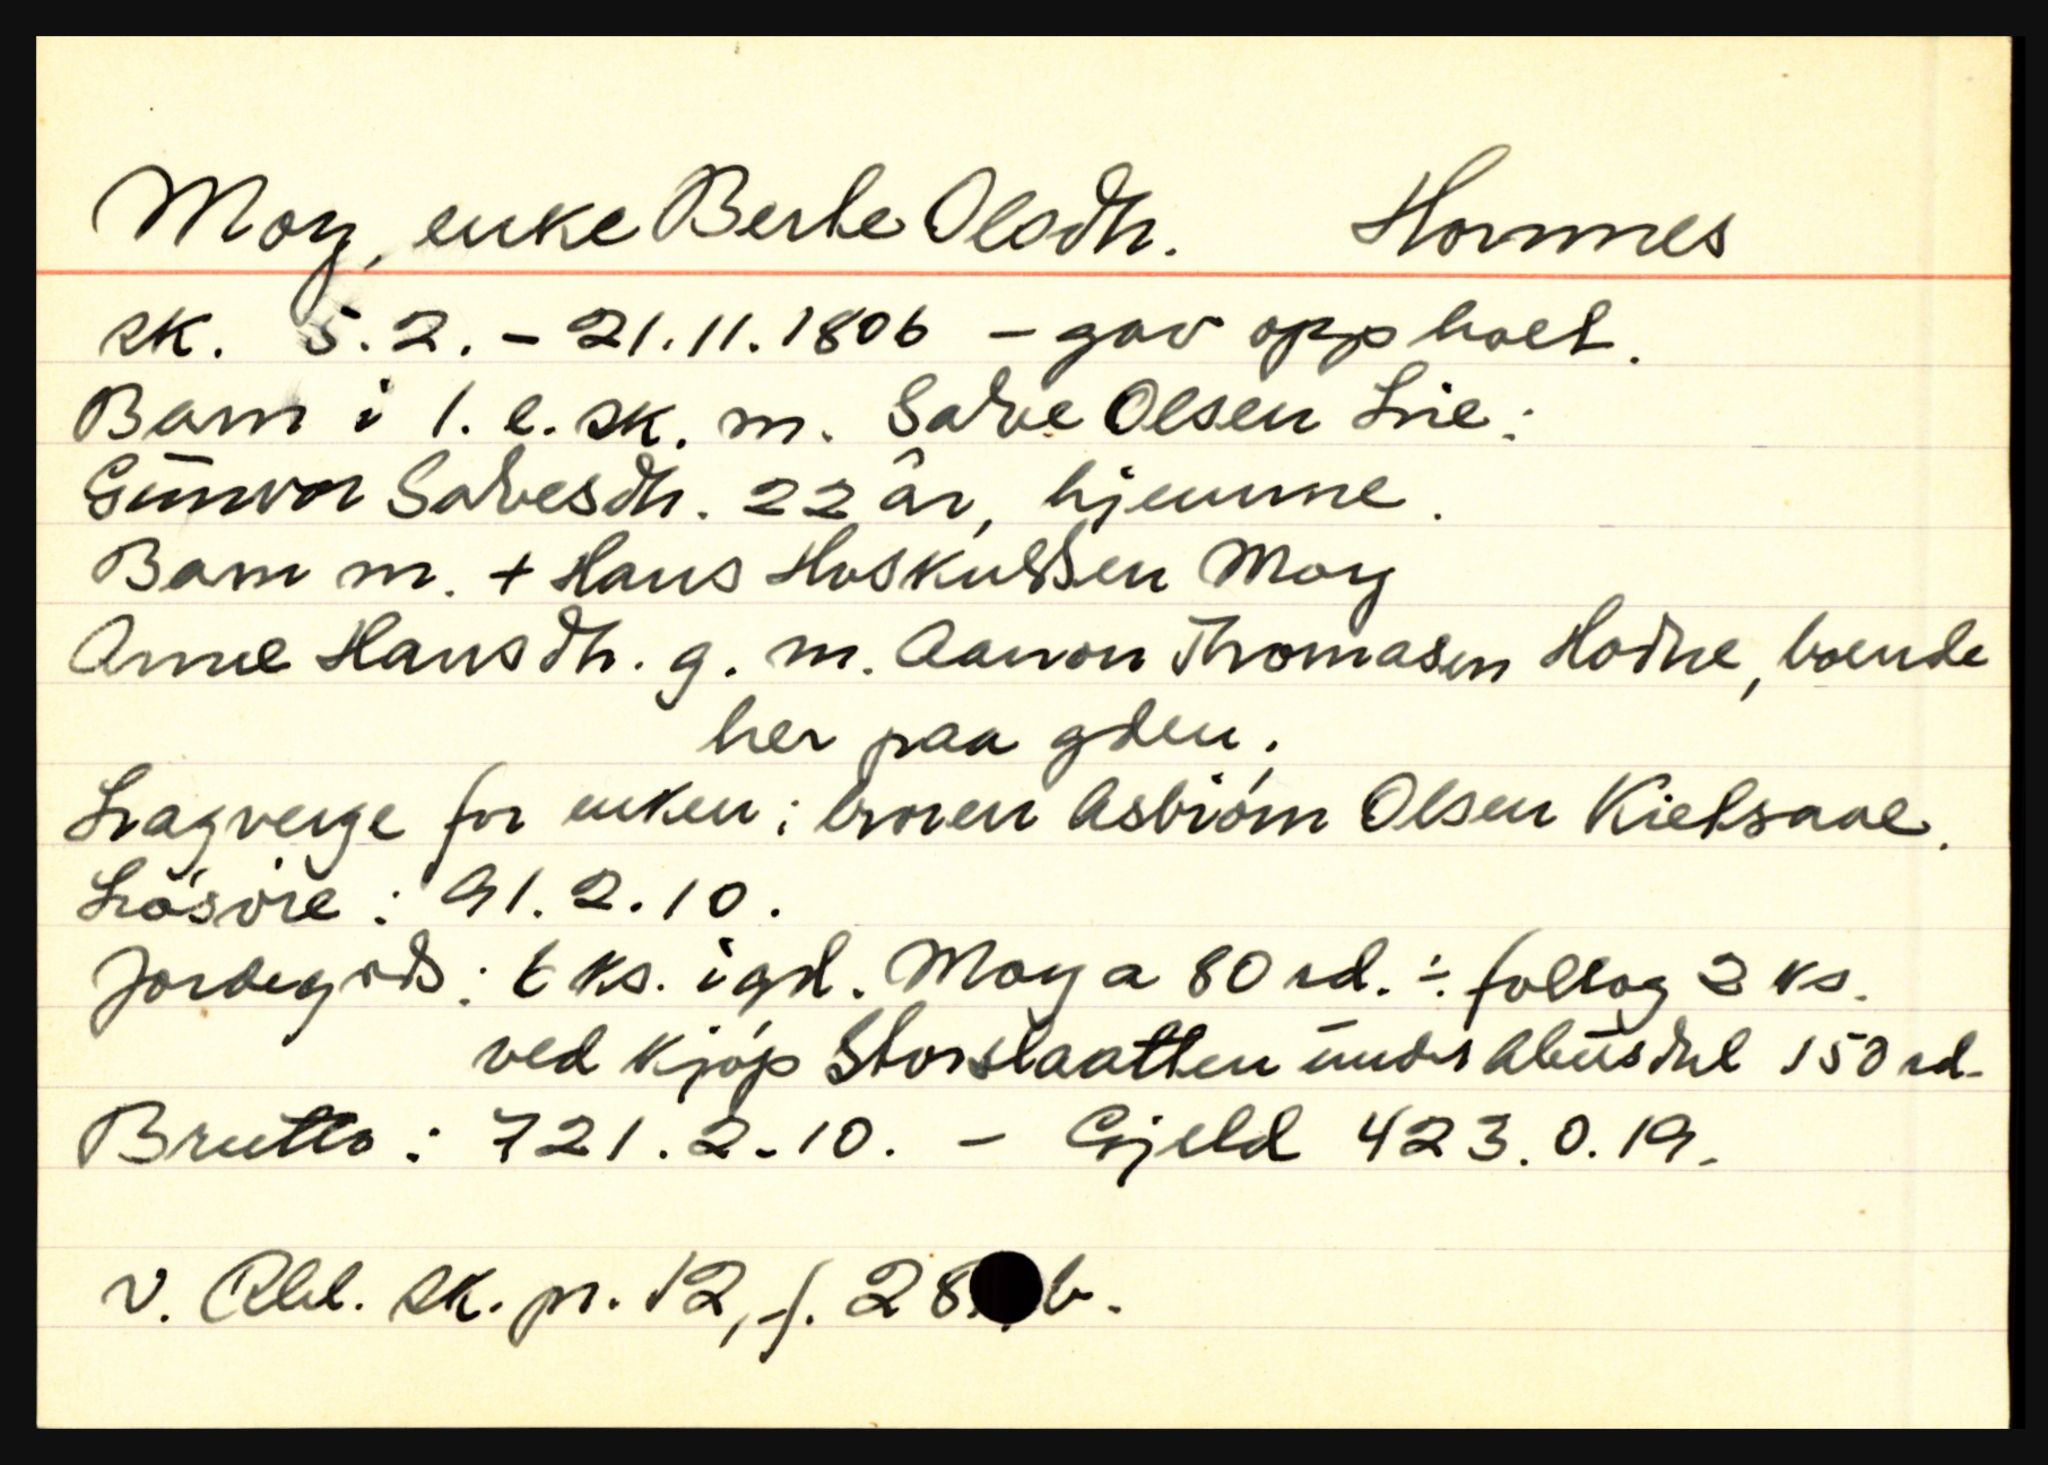 Moy, enke Berte Olsdtr. Hornnes
sk. 5.2. - 21.11.1806 - gav opp boet.
Barn i 1. e.sk. m. Salve Olsen Lie:
Gunvor Salvesdtr. 22 år, hjemme.
Barn m. + Hans Hoskuldsen Moy
Anne Hansdtr. g. m. Aanon Thomasen Hodne, boende
her paa gden.
Lagverge for enken: broren Asbiörn Olsen Kielsaae.
Lösöre: 91.2.10.
Jordegods: 6 ks. i gd. Moy a 80 rd. ÷ follog 3 ks.
ved kjöp Storslaatten under Abusdal 150 rd.
Brutto: 721.2.10. - Gjeld 423.0.19.
v. Rbl. sk. pr. 12, f. 28 b.